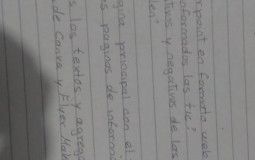 rpoint en formato web
nformados las tic?
tivos y negativos de las
den"
agina principal con el
s paginas de informa
s los textos y agreg
de Canva y Flyer Mak